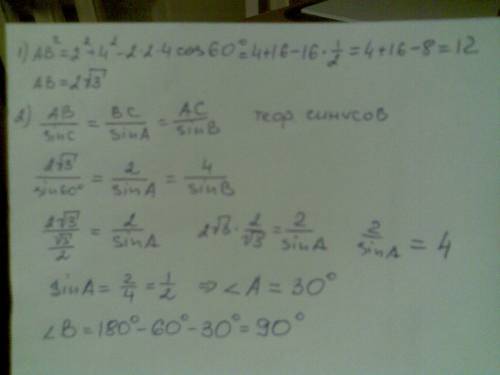 1) AB² = 2² + 4² - 2·2·4 cos 60° = 4 + 16 - 16 · 1/2 = 4 + 16 - 8 = 12
AB = 2√3
2) AB/sinC = BC/sinA = AC/sinB теор синусов
2√3/sin60° = 2/sinA = 4/sinB
2√3/(√3/2) = 2/sinA 2√3 · 2/√3 = 2/sinA 2/sinA = 4
sinA = 2/4 = 1/2 ⇒ ∠A = 30°
∠B = 180° - 60° - 30° = 90°